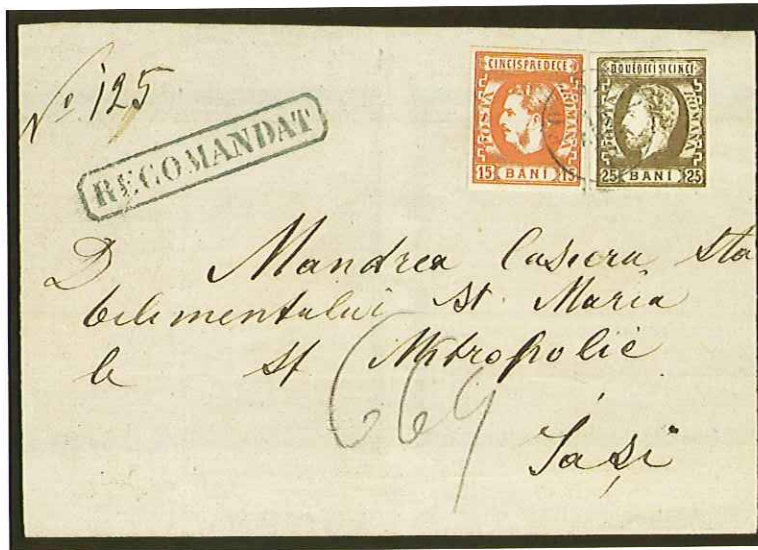 No 125
RECOMANDAT
CINCISPREDECE
POSTA ROMANA
15 BANI 15
DOUEDECI SI CINCI
POSTA ROMANA
25 BANI 25
D Mandrea Casiera Sta
bilimentului St. Maria
la Sf Mitropolie
669
Iași